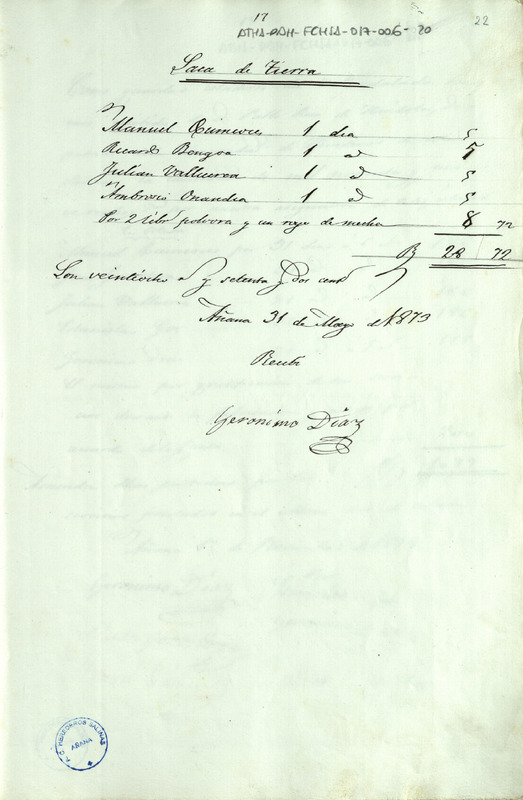 17
22
ATHA-DAH-FCHSA-017-006-20
Saca de Tierra
Manuel 1 dia 5
Ricardo Bengoa 1 id 5
Julian Valluerca 1 id 5
Ambrosio Onandia 1 id 5
Por 2 libr polvora y un royo de mecha 8 72
R 28 72
Son veintiocho y setenta y dos cent
Añana 31 de Mayo de 1873
Recibi
Geronimo Diaz
F. C. HEREDEROS SALINAS
AÑANA